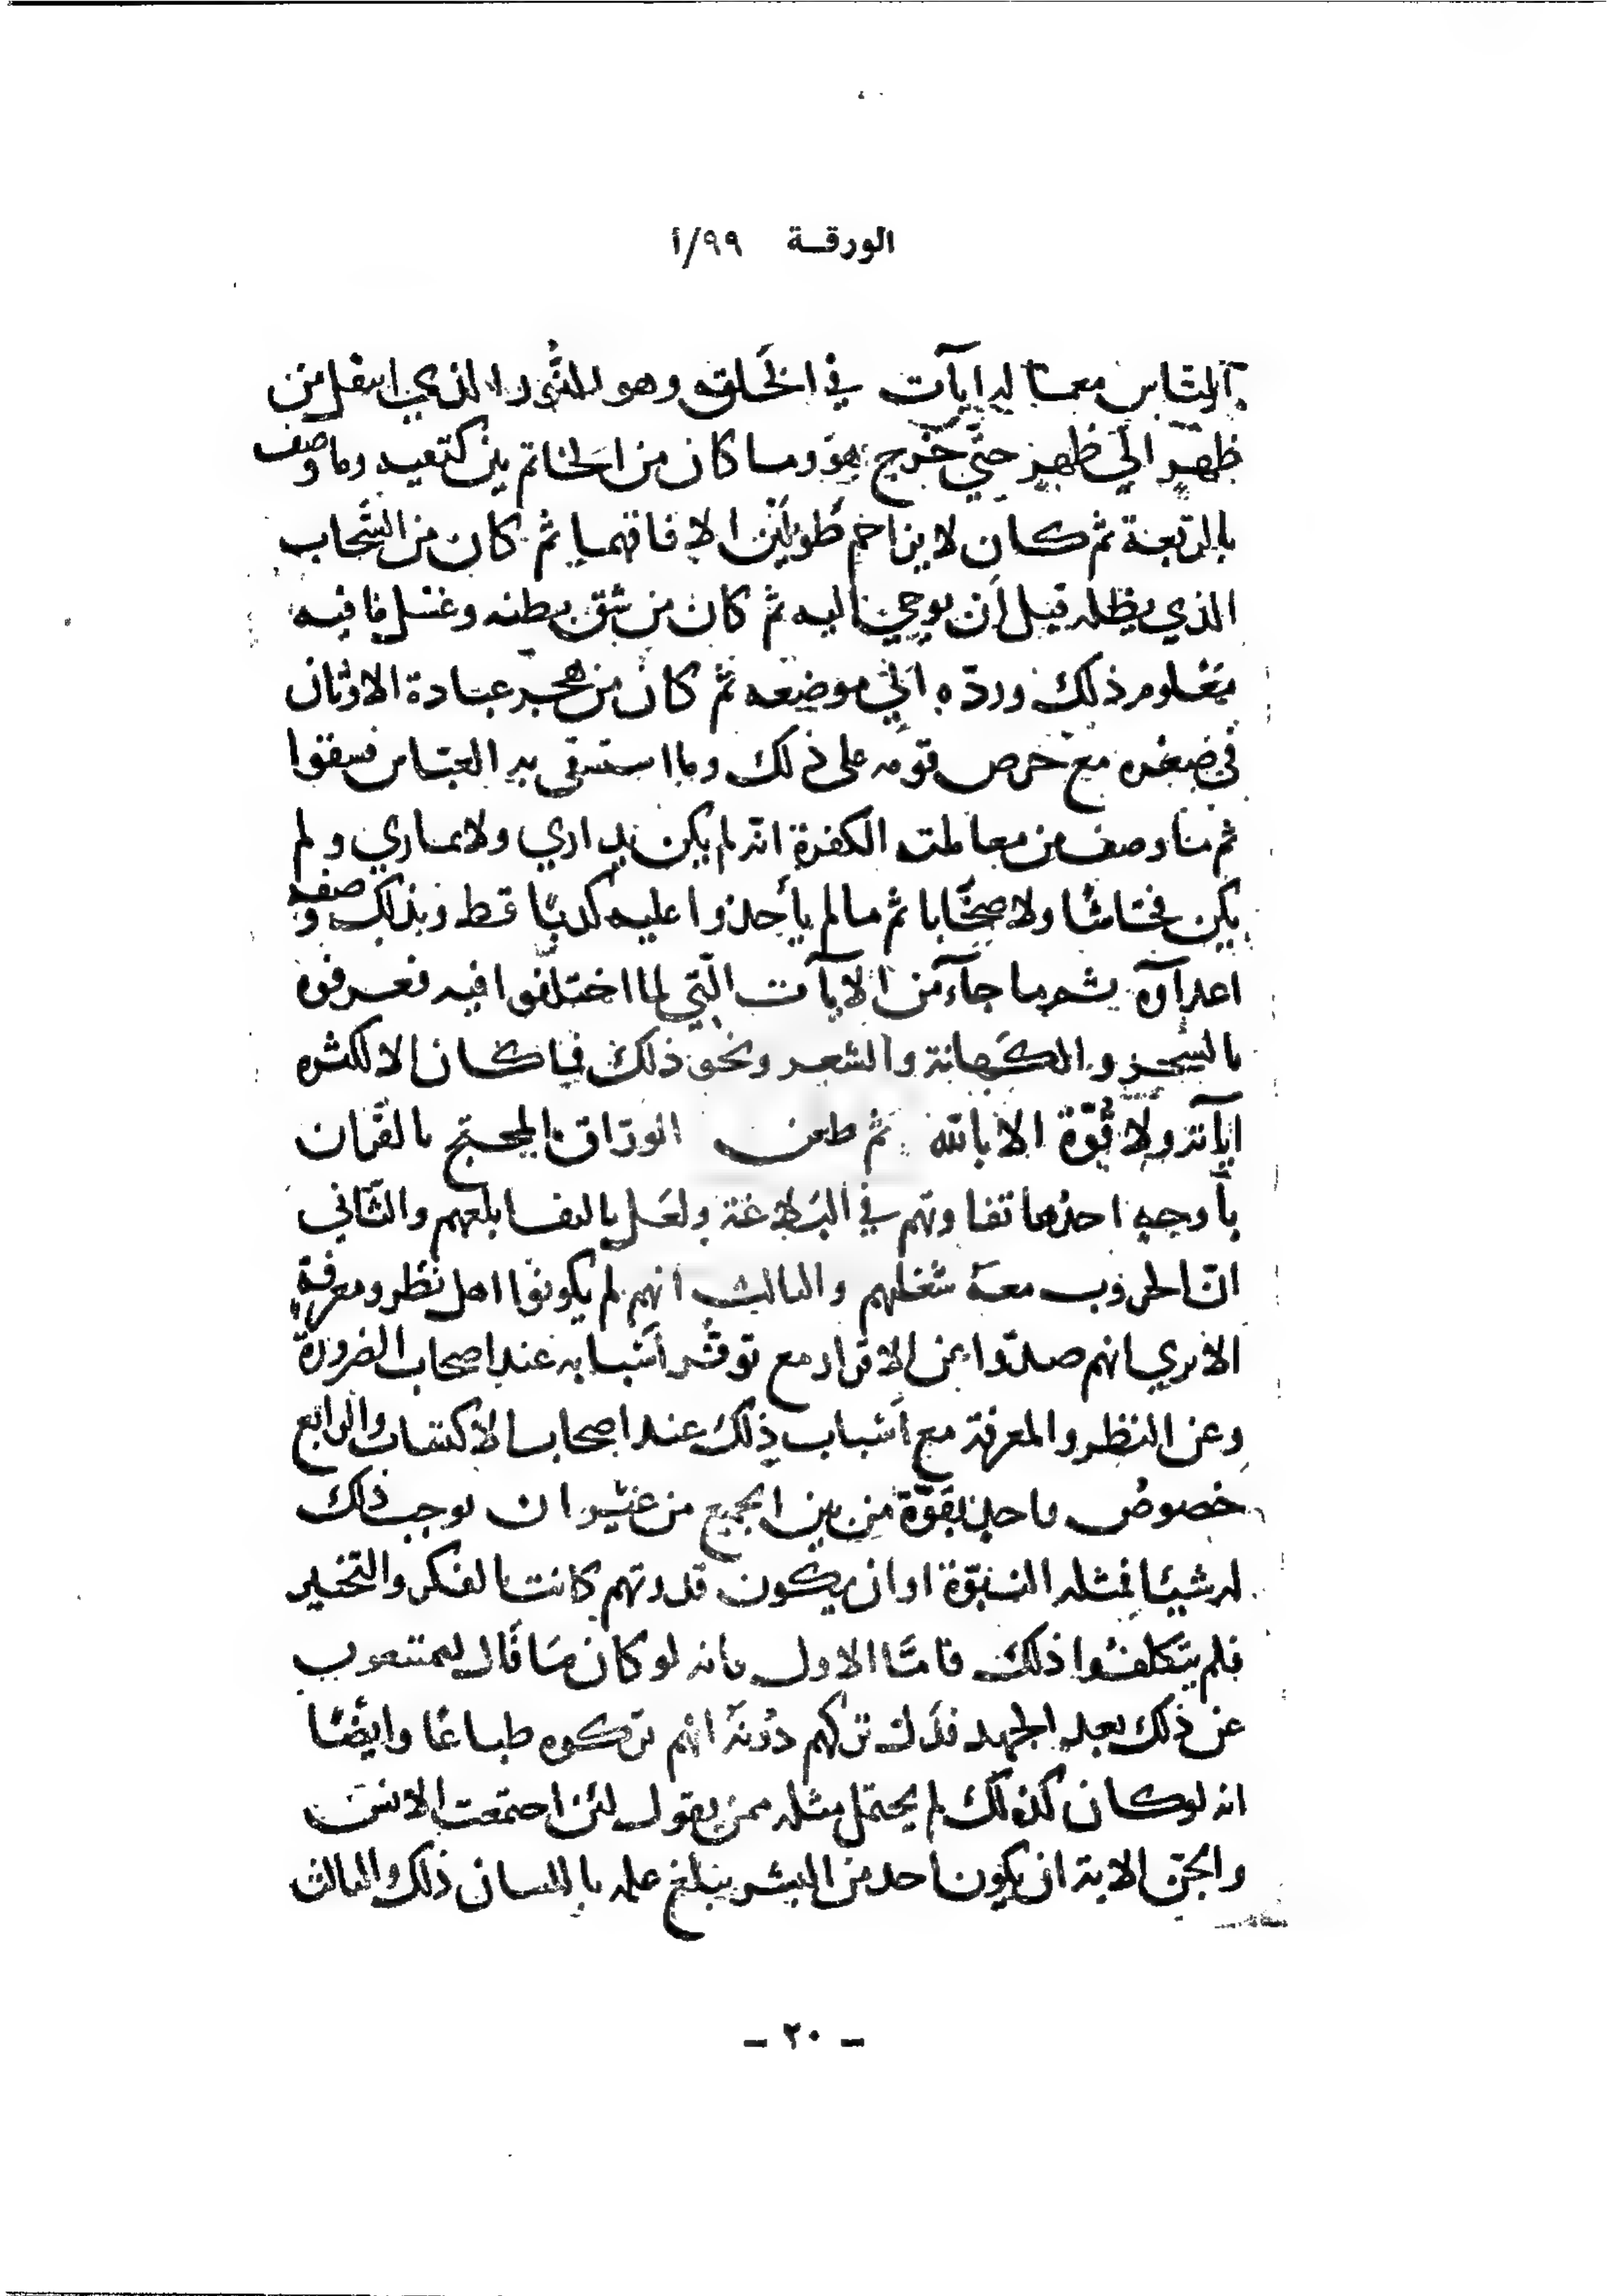 الورقة ٩٩/أ
الناس معما له ايآت في الخلقه وهو النور الذي انتقل من
ظهر الي ظهر حتي خرج هو وما كان من الخاتم بين كتفيه وما وصف
بالربعة ثم كان لا يزاحم طويلين الا فاقهما ثم كان من السحاب
الذي يظله قبل أن يوحي اليه ثم كان من شق بطنه وغسل ما فيه
معلوم ذلك ورده الي موضعه ثم كان من هجر عبادة الاوثان
في صغره مع حرص قومه على ذلك وما استسقى به العباس فسقوا
ثم ما وصف من معاملته الكفرة انه لم يكن يداري ولا يماري ولم
يكن فحاشا ولا صخابا ثم ما لم يأخذوا عليه كذبا قط وبذلك وصفه
اعدآؤه ثم ما جآء من الايآت التي لما اختلفوا فيه فعرفوه
بالسحر والكهانة والشعر ونحو ذلك فما كان الا لكثره
ايآته ولا قوة الا بالله ثم طعن الوراق المحتج بالقران
بأوجه احدها تفاوتهم في البلاغة ولعل بالفا بلغهم والثاني
ان الحروب معه شغلهم والثالث انهم لم يكونوا اهل نظر ومعرفة
الا يري انهم صدوا عن الاقرار مع توفر أسبابه عند اصحاب الضرورة
وعن النظر والمعرفة مع أسباب ذلك عند اصحاب الاكتساب والرابع
خصوص واحد بقوة من بين الجميع من غير ان يوجب ذلك
له شيئا فمثله النبوة او ان يكون قدرتهم كانت بالفكر والتخير
فلم يتكلفوا ذلك فامّا الاول فانه لو كان ما قال ليمتنعون
عن ذلك بعد الجهد فدل تركهم دونه انهم تركوه طباعًا وايضًا
انه لو كان كذلك لم يحتمل مثله ممن يقول لئن اجتمعت الانس
والجن الاية ان يكون احد من البشر يبلغ علمه باللسان ذلك والثالث
- ٢٠ -